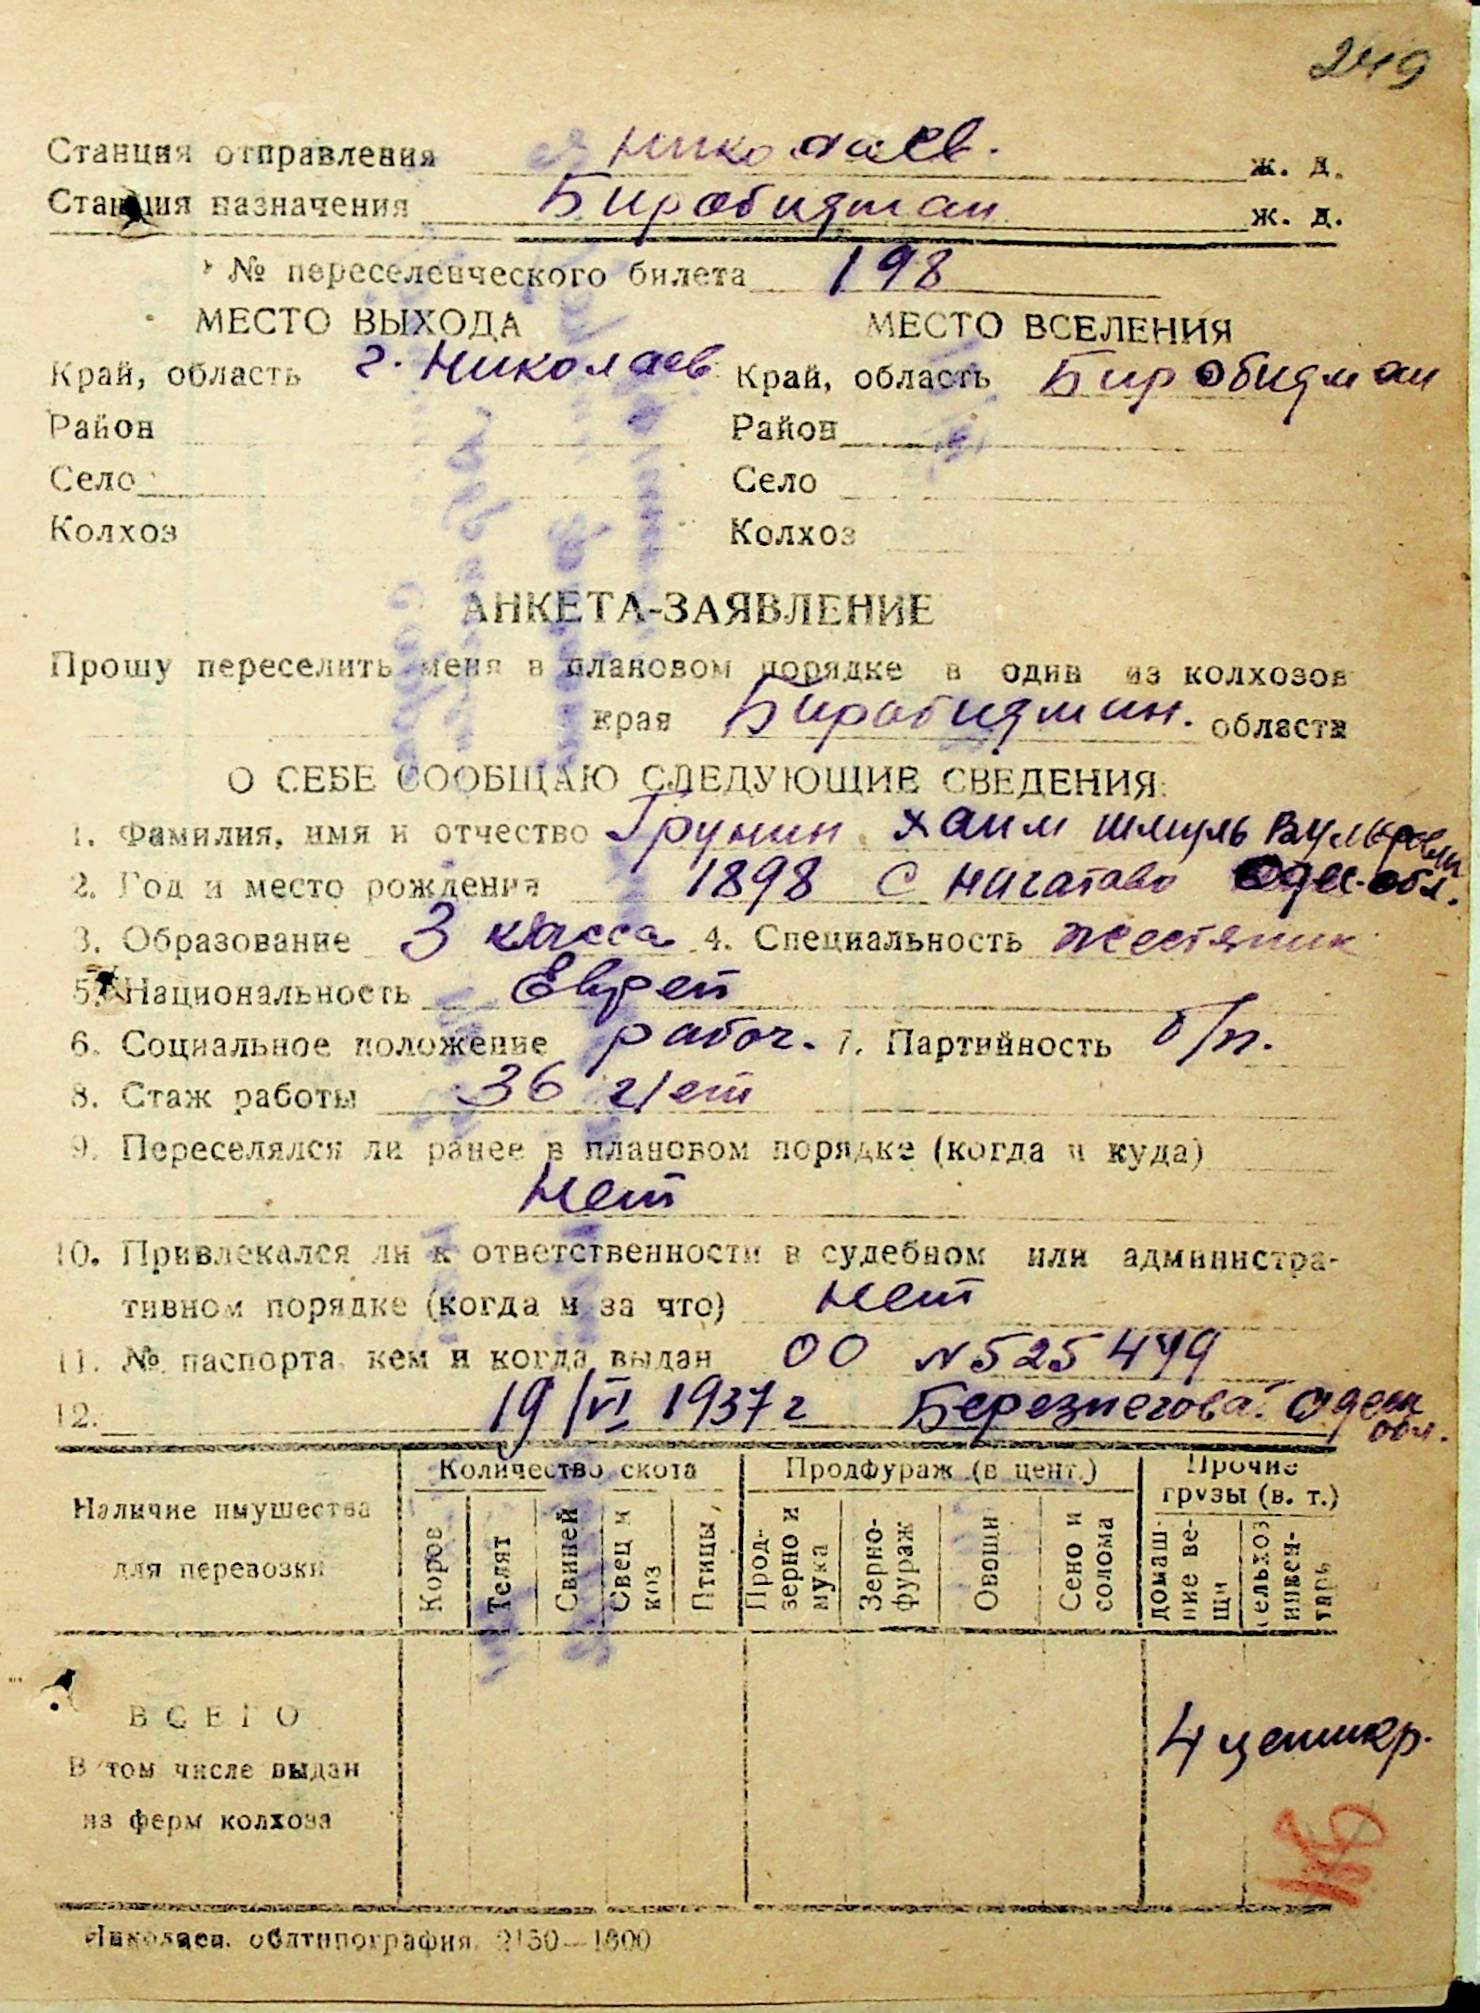 249
Станция отправления Николаев. ж. д.
Станция назначения Биробиджан ж. д.
№ переселенческого билета 198
МЕСТО ВЫХОДА МЕСТО ВСЕЛЕНИЯ
Край, область г. Николаев Край, область Биробиджан
Район Район
Село Село
Колхоз Колхоз
АНКЕТА-ЗАЯВЛЕНИЕ
Прошу переселить меня в плановом порядке в один из колхозов
края Биробиджан. области
О СЕБЕ СООБЩАЮ СЛЕДУЮЩИЕ СВЕДЕНИЯ:
1. Фамилия, имя и отчество Грунин Хаим Шмуль Вульфович
2. Год и место рождения 1898 с Одес. обл.
3. Образование 3 класса 4. Специальность жестяник
5. Национальность Еврей
6. Социальное положение рабоч. 7. Партийность б/п.
8. Стаж работы 36 лет
9. Переселялся ли ранее в плановом порядке (когда и куда)
Нет
10. Привлекался ли к ответственности в судебном или администра-
тивном порядке (когда и за что) нет
11. № паспорта, кем и когда выдан ОО № 525499
12. 19/VI 1937 г Березнегова. Одесс обл.
Наличие имущества для перевозки
Количество скота Продфураж (в цент.) Прочие грузы (в. т.)
Коров Телят Свиней Овец и коз Птицы, Прод-зерно и мука Зерно-фураж Овощи Сено и солома домаш-ние ве-щи сельхоз инвен-тарь
ВСЕГО
4 центнер.
В том числе выдан
из ферм колхоза
Николаев. облтипография. 2150—1600